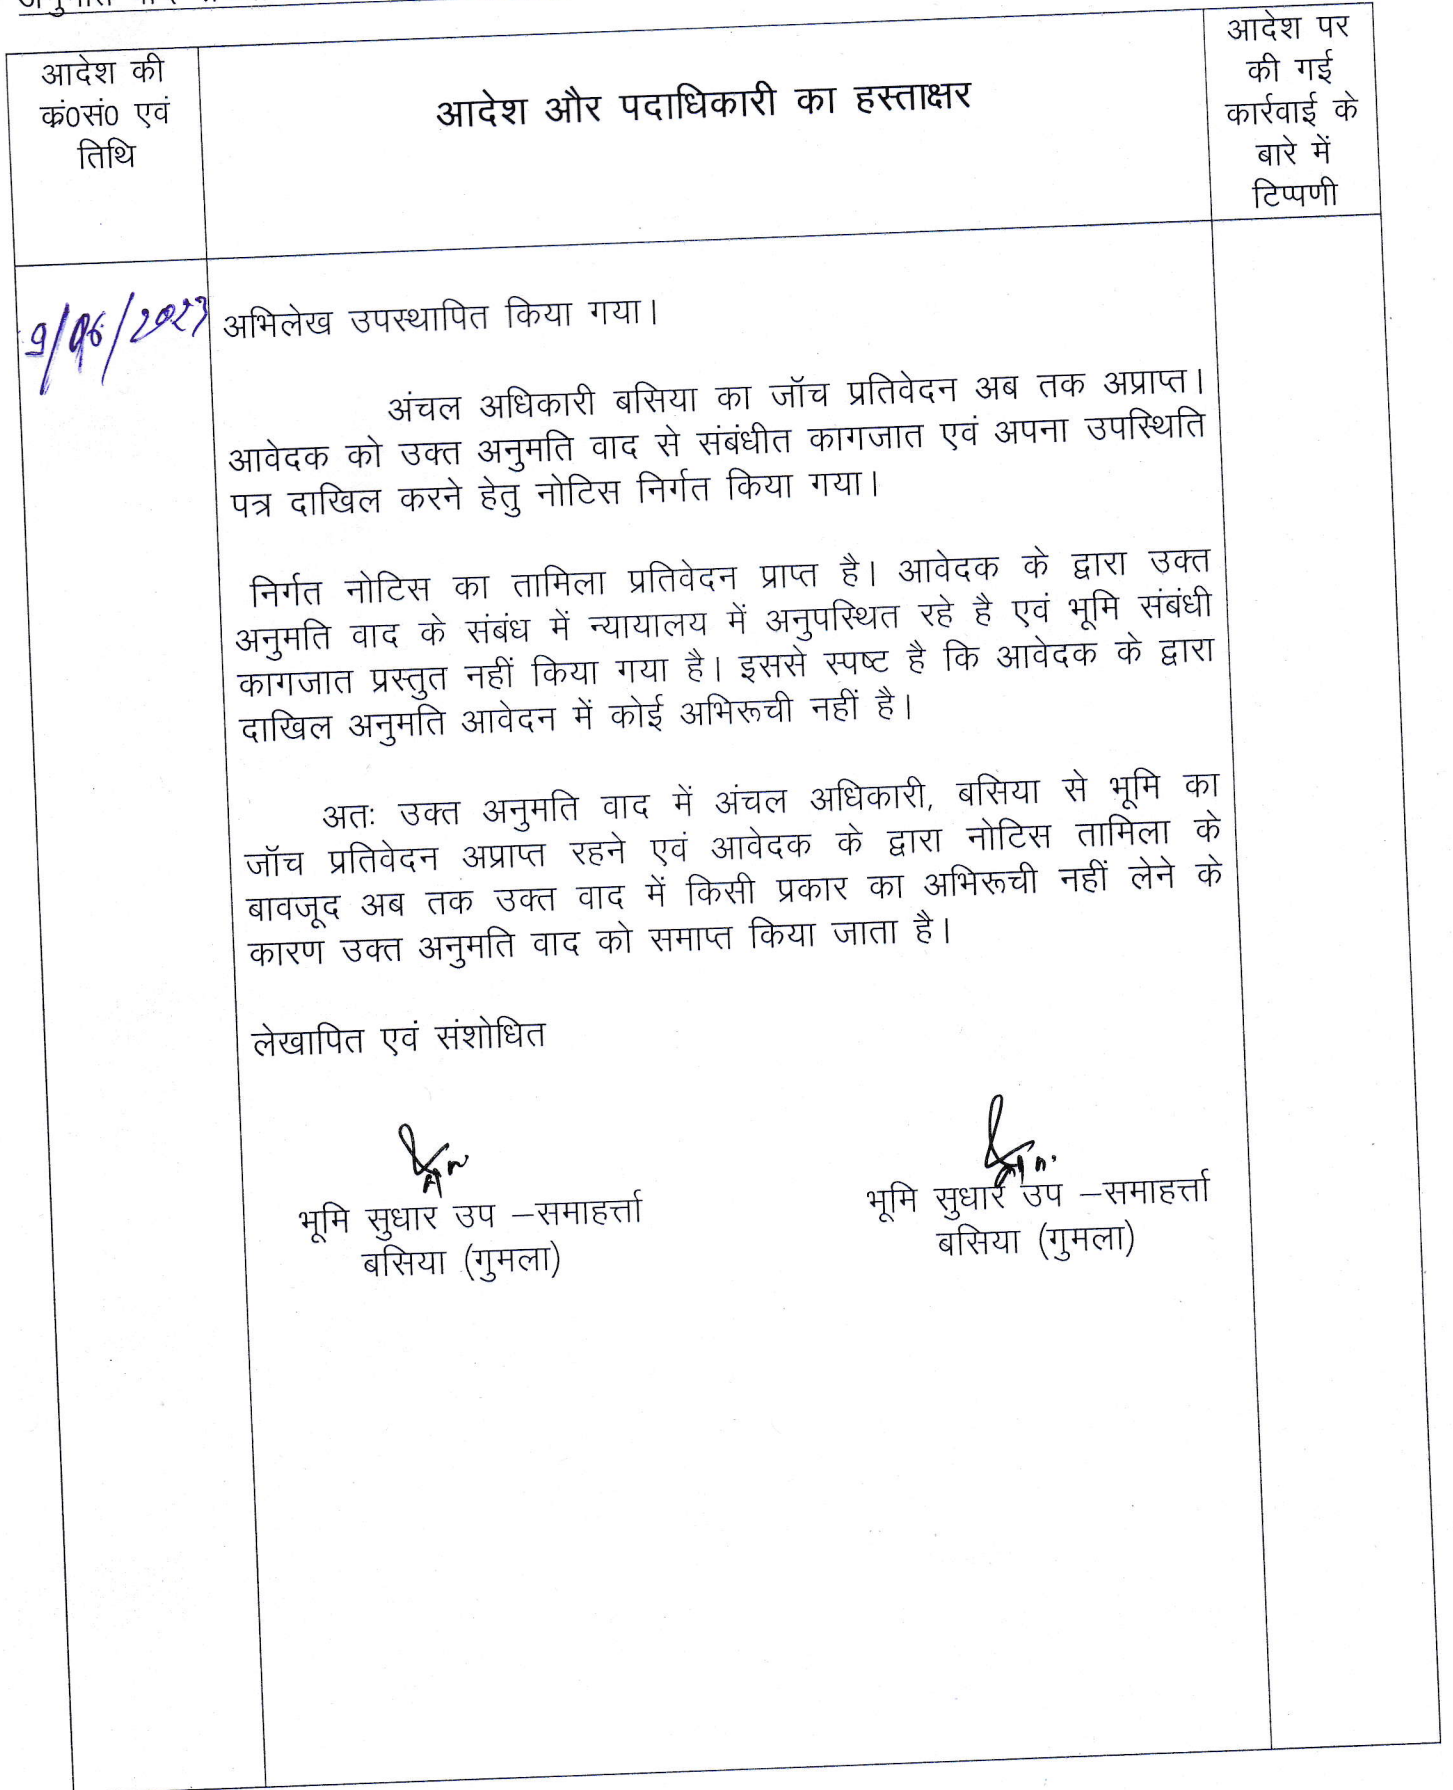 आदेश की
कं0सं0 एवं
तिथि
आदेश और पदाधिकारी का हस्ताक्षर
आदेश पर
की गई
कार्रवाई के
बारे में
टिप्पणी
9/06/2023
अभिलेख उपस्थापित किया गया।
अंचल अधिकारी बसिया का जॉच प्रतिवेदन अब तक अप्राप्त।
आवेदक को उक्त अनुमति वाद से संबंधीत कागजात एवं अपना उपस्थिति
पत्र दाखिल करने हेतु नोटिस निर्गत किया गया।
निर्गत नोटिस का तामिला प्रतिवेदन प्राप्त है। आवेदक के द्वारा उक्त
अनुमति वाद के संबंध में न्यायालय में अनुपस्थित रहे है एवं भूमि संबंधी
कागजात प्रस्तुत नहीं किया गया है। इससे स्पष्ट है कि आवेदक के द्वारा
दाखिल अनुमति आवेदन में कोई अभिरूची नहीं है।
अतः उक्त अनुमति वाद में अंचल अधिकारी, बसिया से भूमि का
जॉच प्रतिवेदन अप्राप्त रहने एवं आवेदक के द्वारा नोटिस तामिला के
बावजूद अब तक उक्त वाद में किसी प्रकार का अभिरूची नहीं लेने के
कारण उक्त अनुमति वाद को समाप्त किया जाता है।
लेखापित एवं संशोधित
भूमि सुधार उप –समाहर्त्ता
बसिया (गुमला)
भूमि सुधार उप –समाहर्त्ता
बसिया (गुमला)